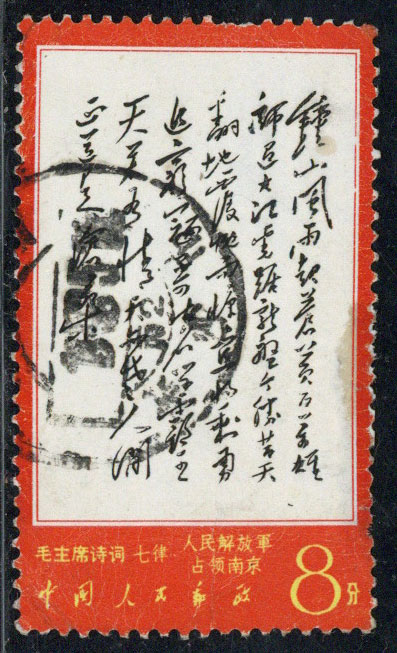 鐘山風雨起蒼黄百萬雄
師過大江虎踞龍盤今勝昔天
翻地覆慨而慷宜將剩勇
追窮寇不可沽名學霸王
天若有情天亦老人間
正道是滄桑
毛主席诗词 七律 人民解放軍
占领南京
中国人民邮政
8分